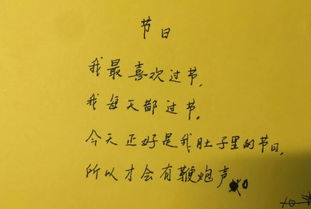 节日
我最喜欢过节,
我每天都过节。
今天正好是我肚子里的节日,
所以才会有鞭炮声。